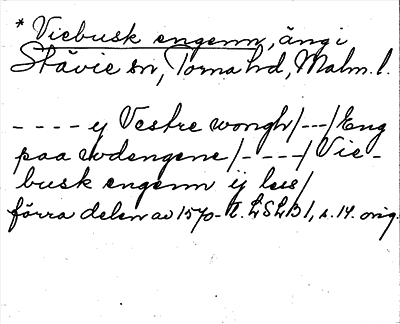 * Viebusk engenn, äng i
Stävie sn, Torna hd, Malm. l.
- - - - y Vestre wongh/---/Eng
paa wdengene/-----/Vie-
busk engenn ij les/
förra delen av 1570-t. LSLB1, s. 14. orig.